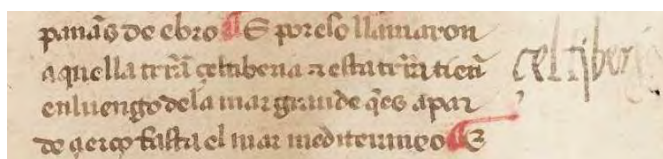 panãs de ebro ¶ E por eso llamaron
a quella trr̃a çeltiberia ⁊ esta trr̃a tien̄
en luengo dela mar grande q̃es apar
de çierço fasta el mar mediterraneo ¶ E
celtiberi